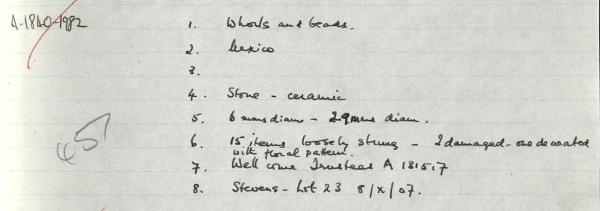 A-1840-1982
1. Whorls and beads.
2. Mexico
3.
4. Stone - ceramic
5. 6 mms diam - 29mms diam.
6. 15 items loosely strung - 2 damaged - one decorated
with floral pattern.
7. Wellcome Trustees A 131517
8. Stevens - Lot 23 8/X/07.
65